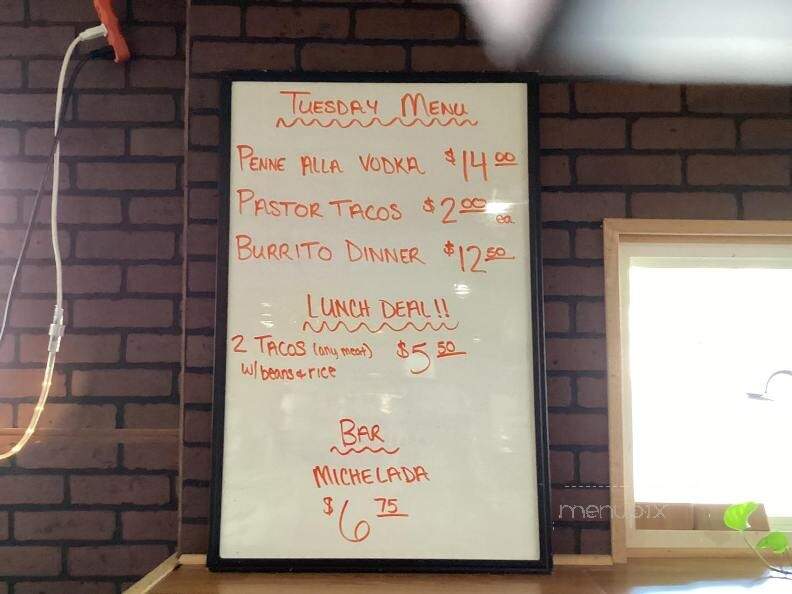 TUESDAY MENU
PENNE ALLA VODKA $14.00
PASTOR TACOS $2.00 ea
BURRITO DINNER $12.50
LUNCH DEAL!!
2 TACOS (any meat) $5.50
w/ beans & rice
BAR
MICHELADA
$6.75
menupix